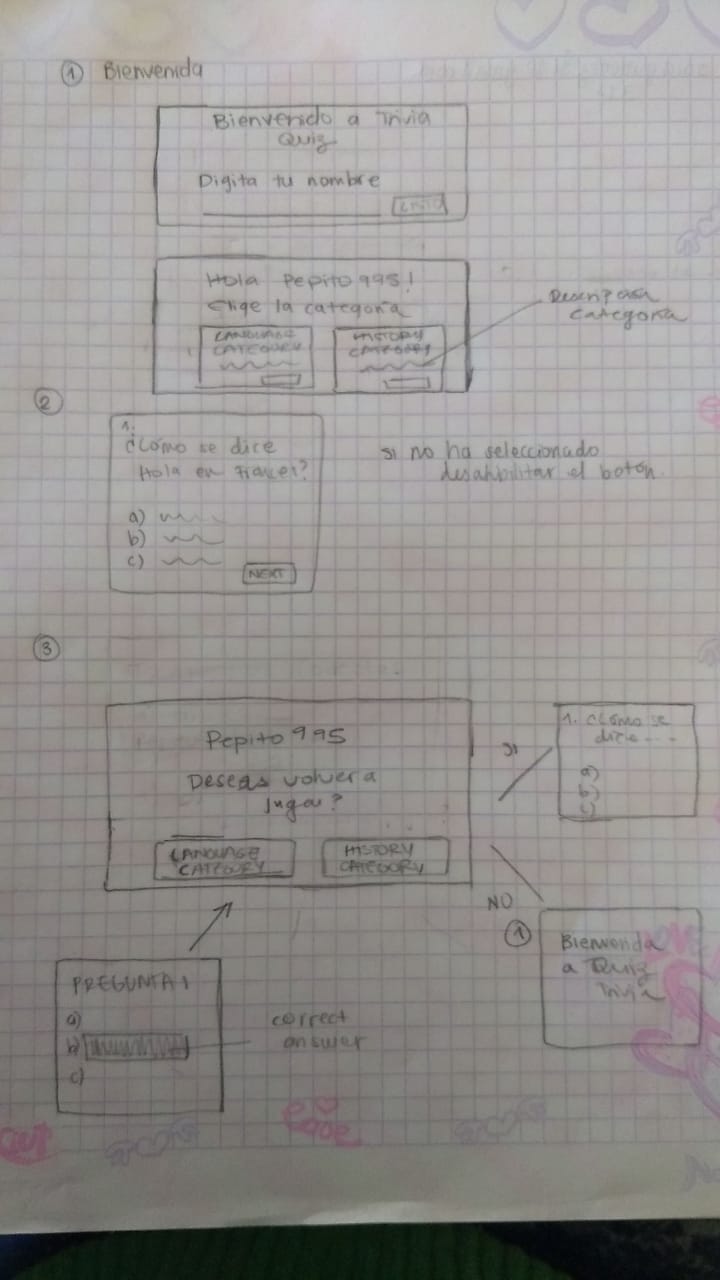 1 Bienvenida
Bienvenido a Trivia
Quiz
Digita tu nombre
LISTO
Hola Pepito995!
Elige la categoría
LANGUAGE
CATEGORY
HISTORY
CATEGORY
categoría
2
1.
¿Cómo se dice
Hola en Frances?
a)
b)
c)
NEXT
si no ha seleccionado
desahbilitar el botón
3
Pepito995
Deseas volver a
jugar?
LANGUAGE
CATEGORY
HISTORY
CATEGORY
SI
1. ¿Cómo se
dice ....
NO
1
Bienvenida
a Quiz
Trivia
PREGUNTA 1
a)
b)
c)
correct
answer
Love